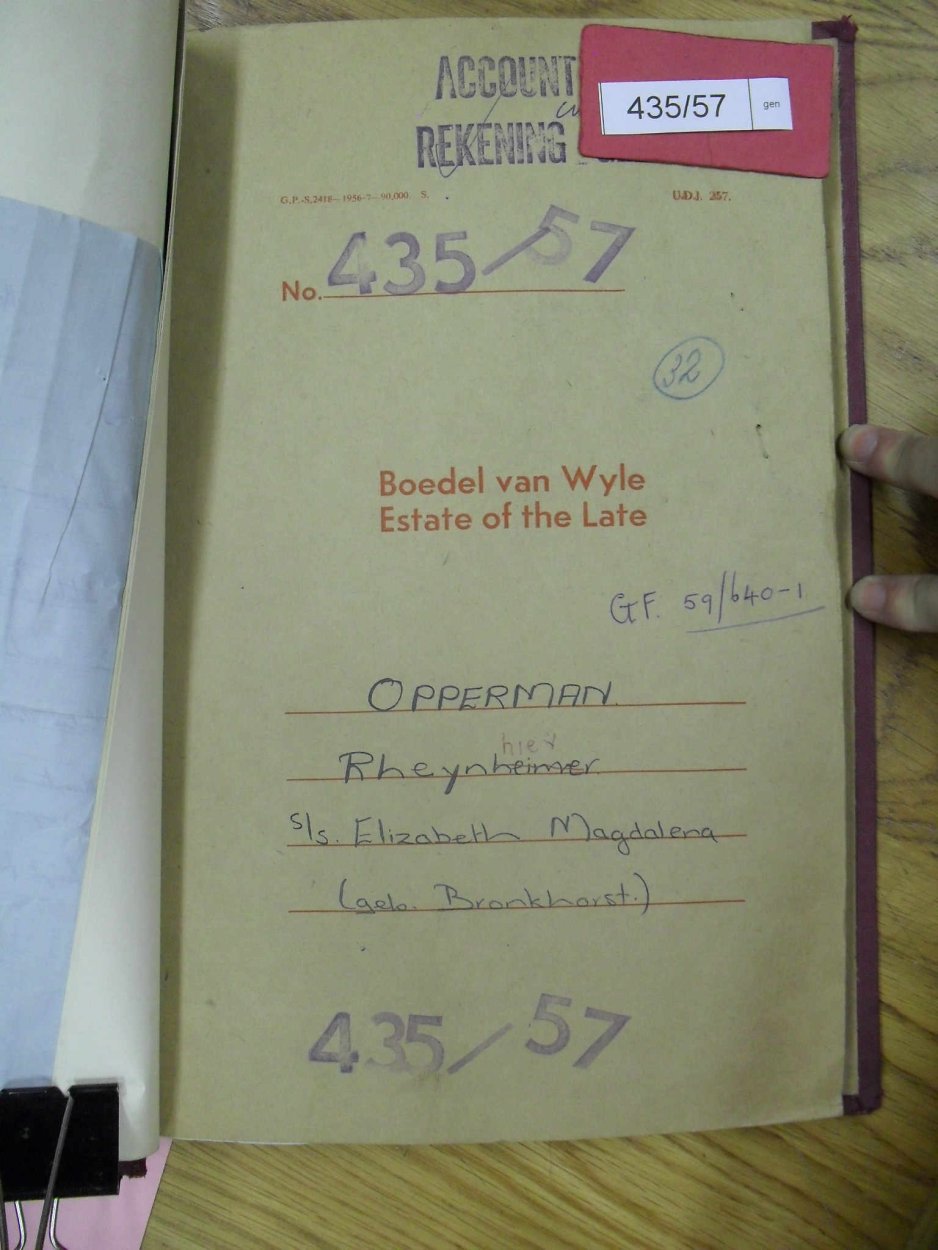 ACCOUNT
REKENING
435/57 gen
G.P.-S.2418—1956-7—90,000. S. U.D.J. 257.
No. 435/57
32
Boedel van Wyle
Estate of the Late
GF. 59/640-1
OPPERMAN.
hier
Rheynheimer
s/s. Elizabeth Magdalena
(geb. Bronkhorst.)
435/57